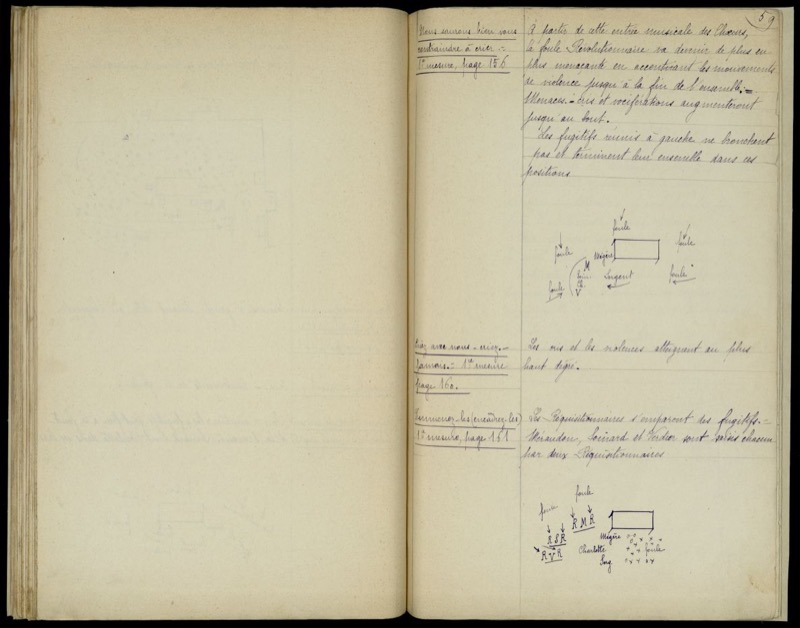 59
Nous saurons bien vous
contraindre à crier :-
1re mesure, page 156
À partir de cette entrée musicale des Chœurs,
la foule Révolutionnaire va devenir de plus en
plus menaçante en accentuant les mouvements
de violence jusqu'à la fin de l'ensemble :-
Menaces - cris et vociférations augmenteront
jusqu'au bout.
Les fugitifs réunis à gauche ne bronchent
pas et terminent leur ensemble dans ces
positions
foule
foule
foule
Mégère
M
Sergent
foule
foule
V
avec nous - criez -
1re mesure
page 160.
Les cris et les violences atteignent au plus
haut degré.
Emmenez-les (encadrez-les)
1re mesure, page 161
Les Réquisitionnaires s'emparent des fugitifs.-
et Verdier sont saisis chacun
par deux Réquisitionnaires
foule
foule
R M R
R S R
R V R
Mégère
Charlotte
foule
Serg